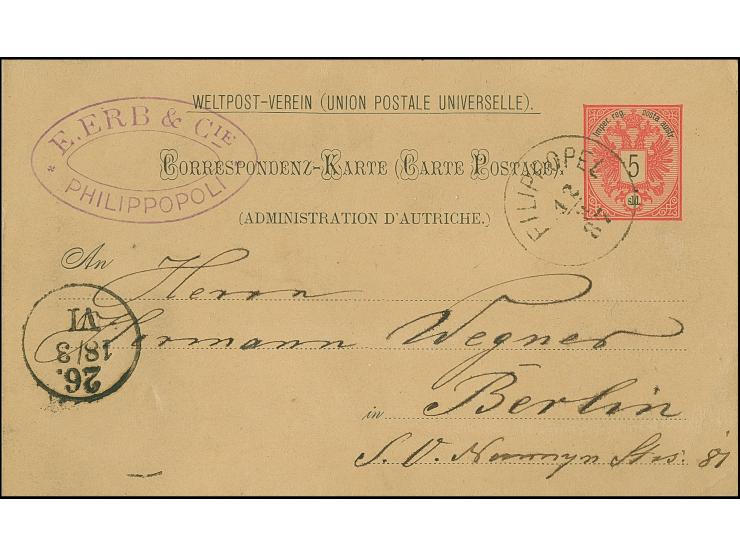 WELTPOST-VEREIN (UNION POSTALE UNIVERSELLE).
E. ERB & CIE
* *
PHILIPPOPOLI
CORRESPONDENZ-KARTE (CARTE POSTALE).
(ADMINISTRATION D'AUTRICHE.)
Imper. reg. posta austr.
5
sld.
FILIPPOPEL
87
An Herrn
Hermann Wegner
in Berlin
S. V.
Strs. 81
26.
18/3
VI